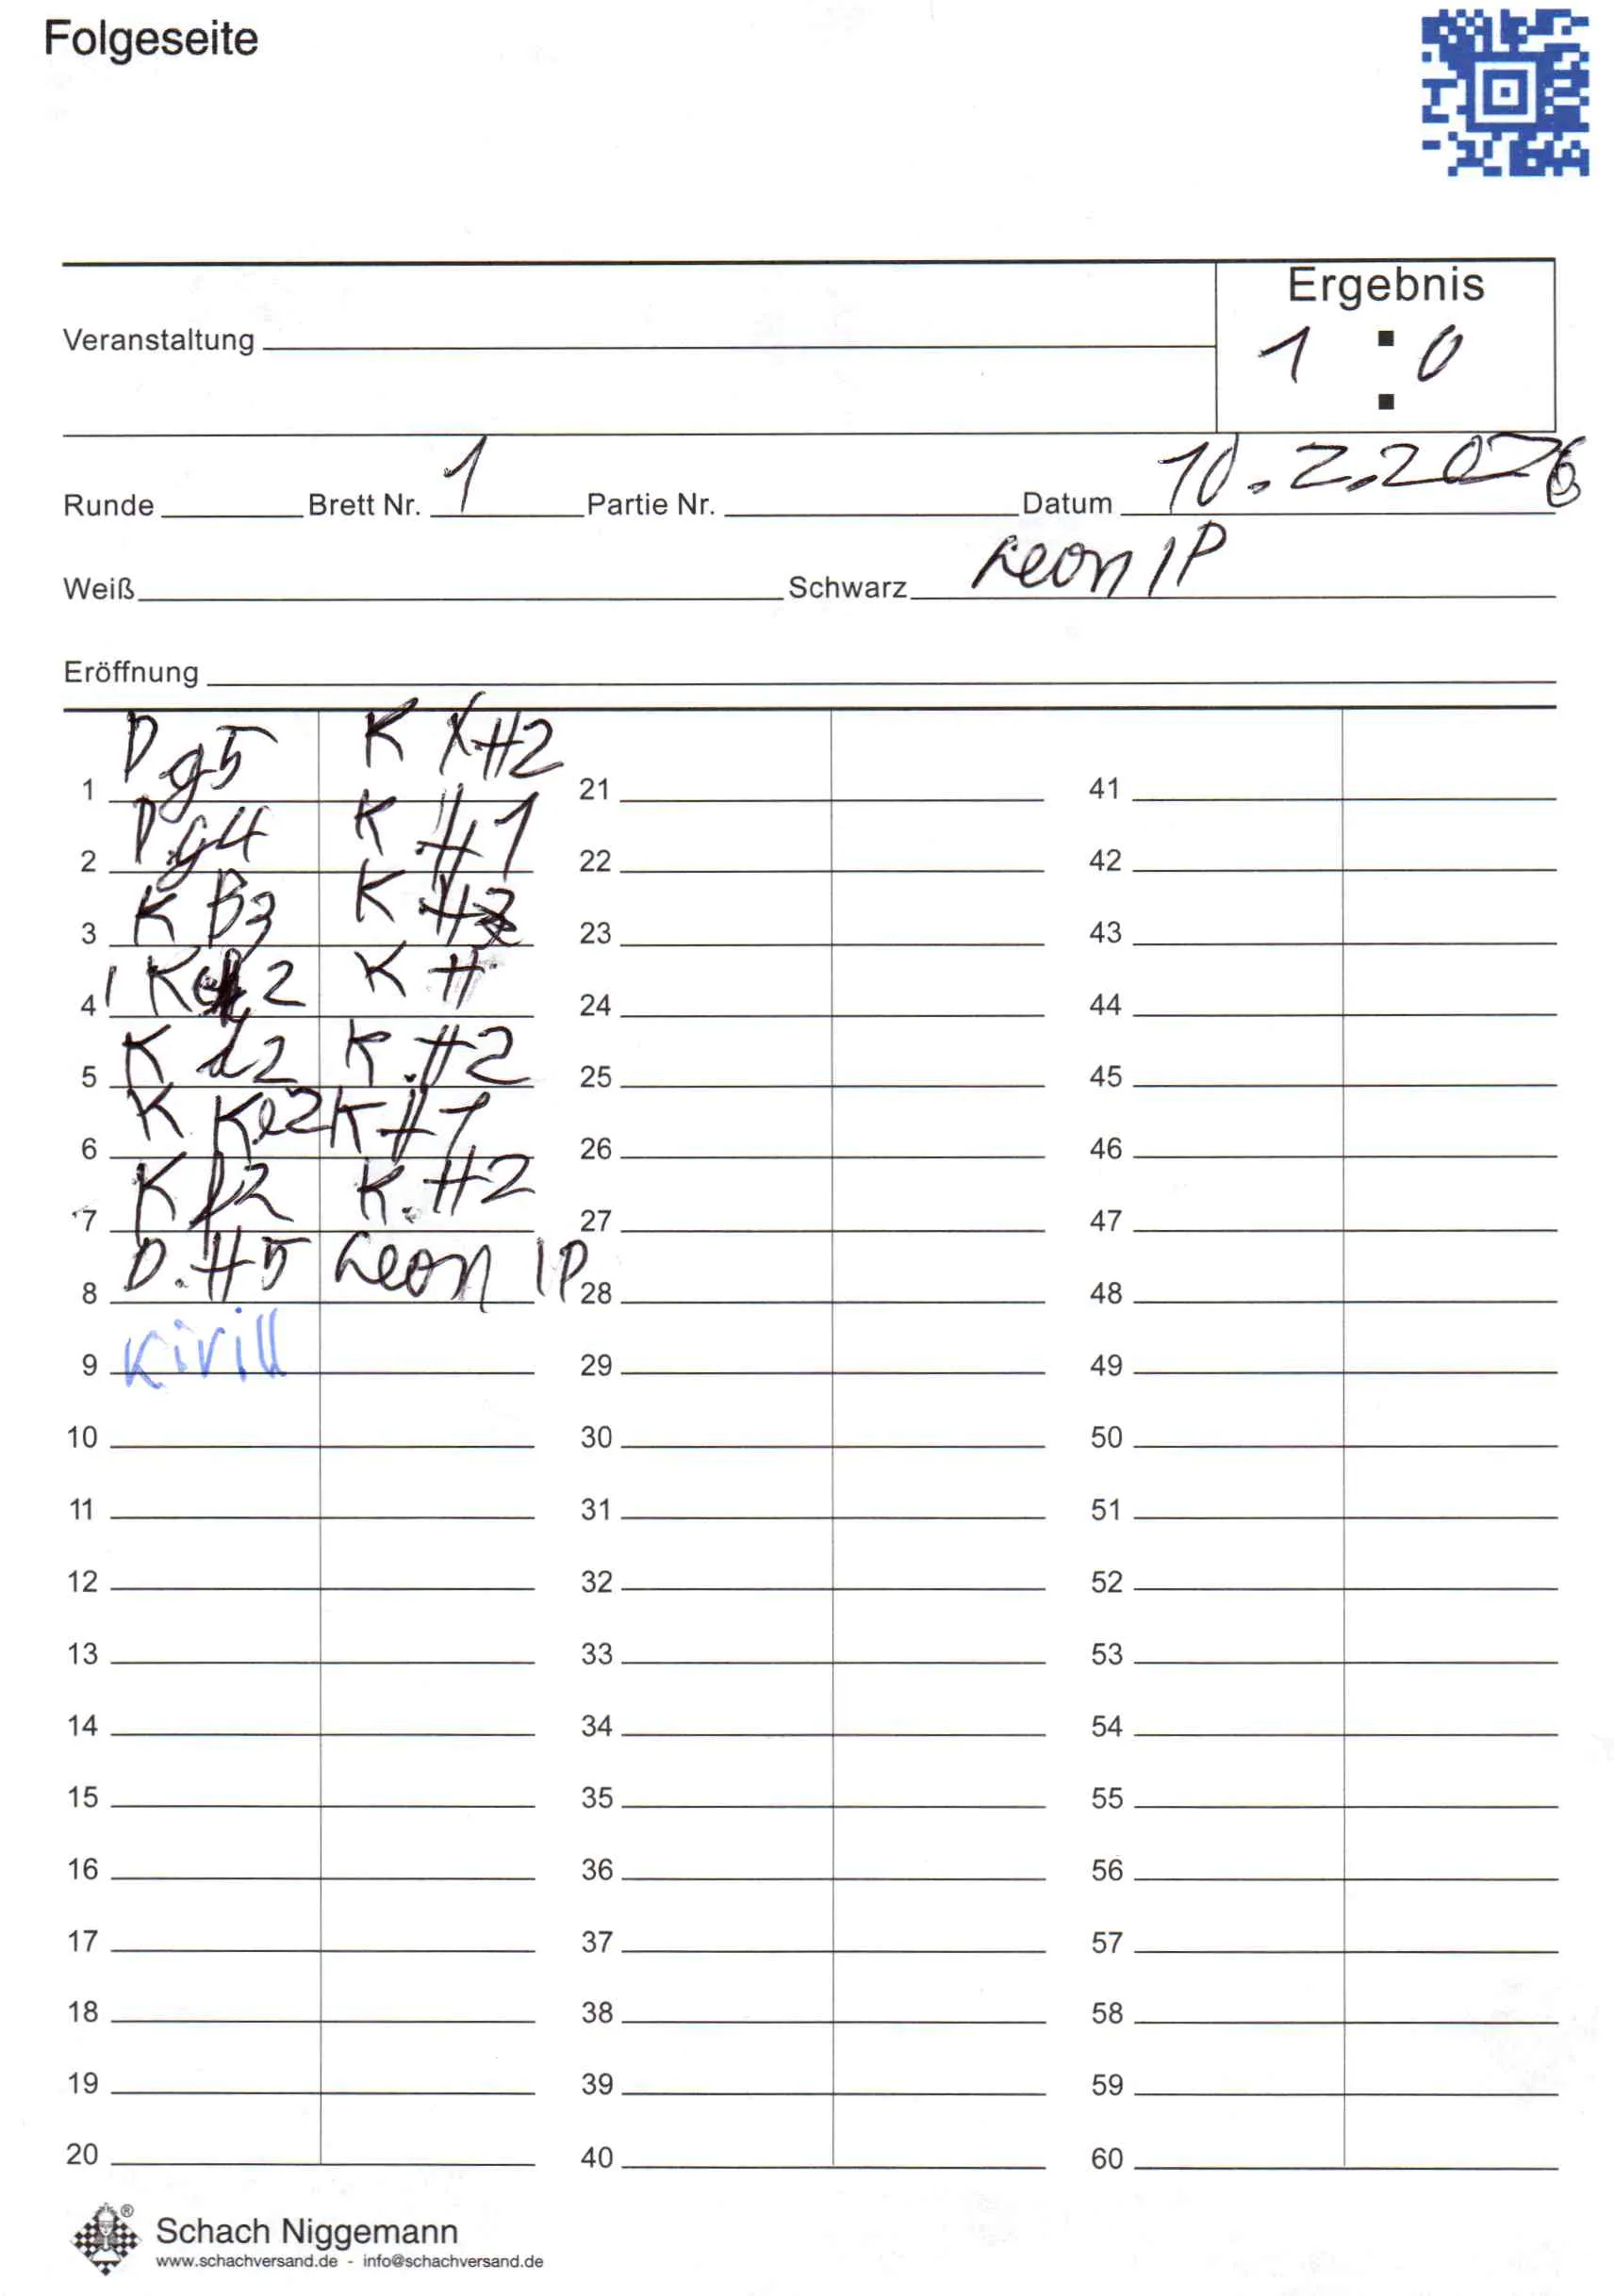 Folgeseite
Ergebnis
1 : 0
Veranstaltung
Runde Brett Nr. 1 Partie Nr. Datum 10.2.2026
Weiß Schwarz Leon IP
Eröffnung
1 D g5 K X H2 21 41
2 D g4 K H1 22 42
3 K B3 K H 23 43
4 K 2 K H 24 44
5 K d2 K.H2 25 45
6 K Ke2 K H1 26 46
7 K f2 K.H2 27 47
8 D.H5 Leon IP 28 48
9 Kirill 29 49
10 30 50
11 31 51
12 32 52
13 33 53
14 34 54
15 35 55
16 36 56
17 37 57
18 38 58
19 39 59
20 40 60
Schach Niggemann
www.schachversand.de - info@schachversand.de